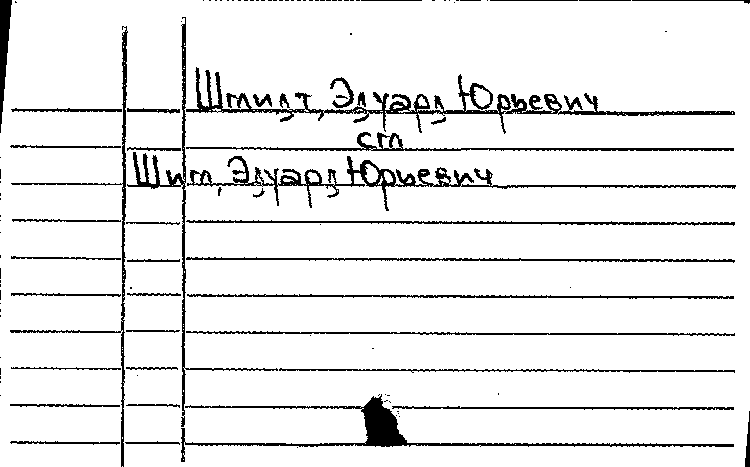 Шмидт, Эдуард Юрьевич
см
Шим, Эдуард Юрьевич